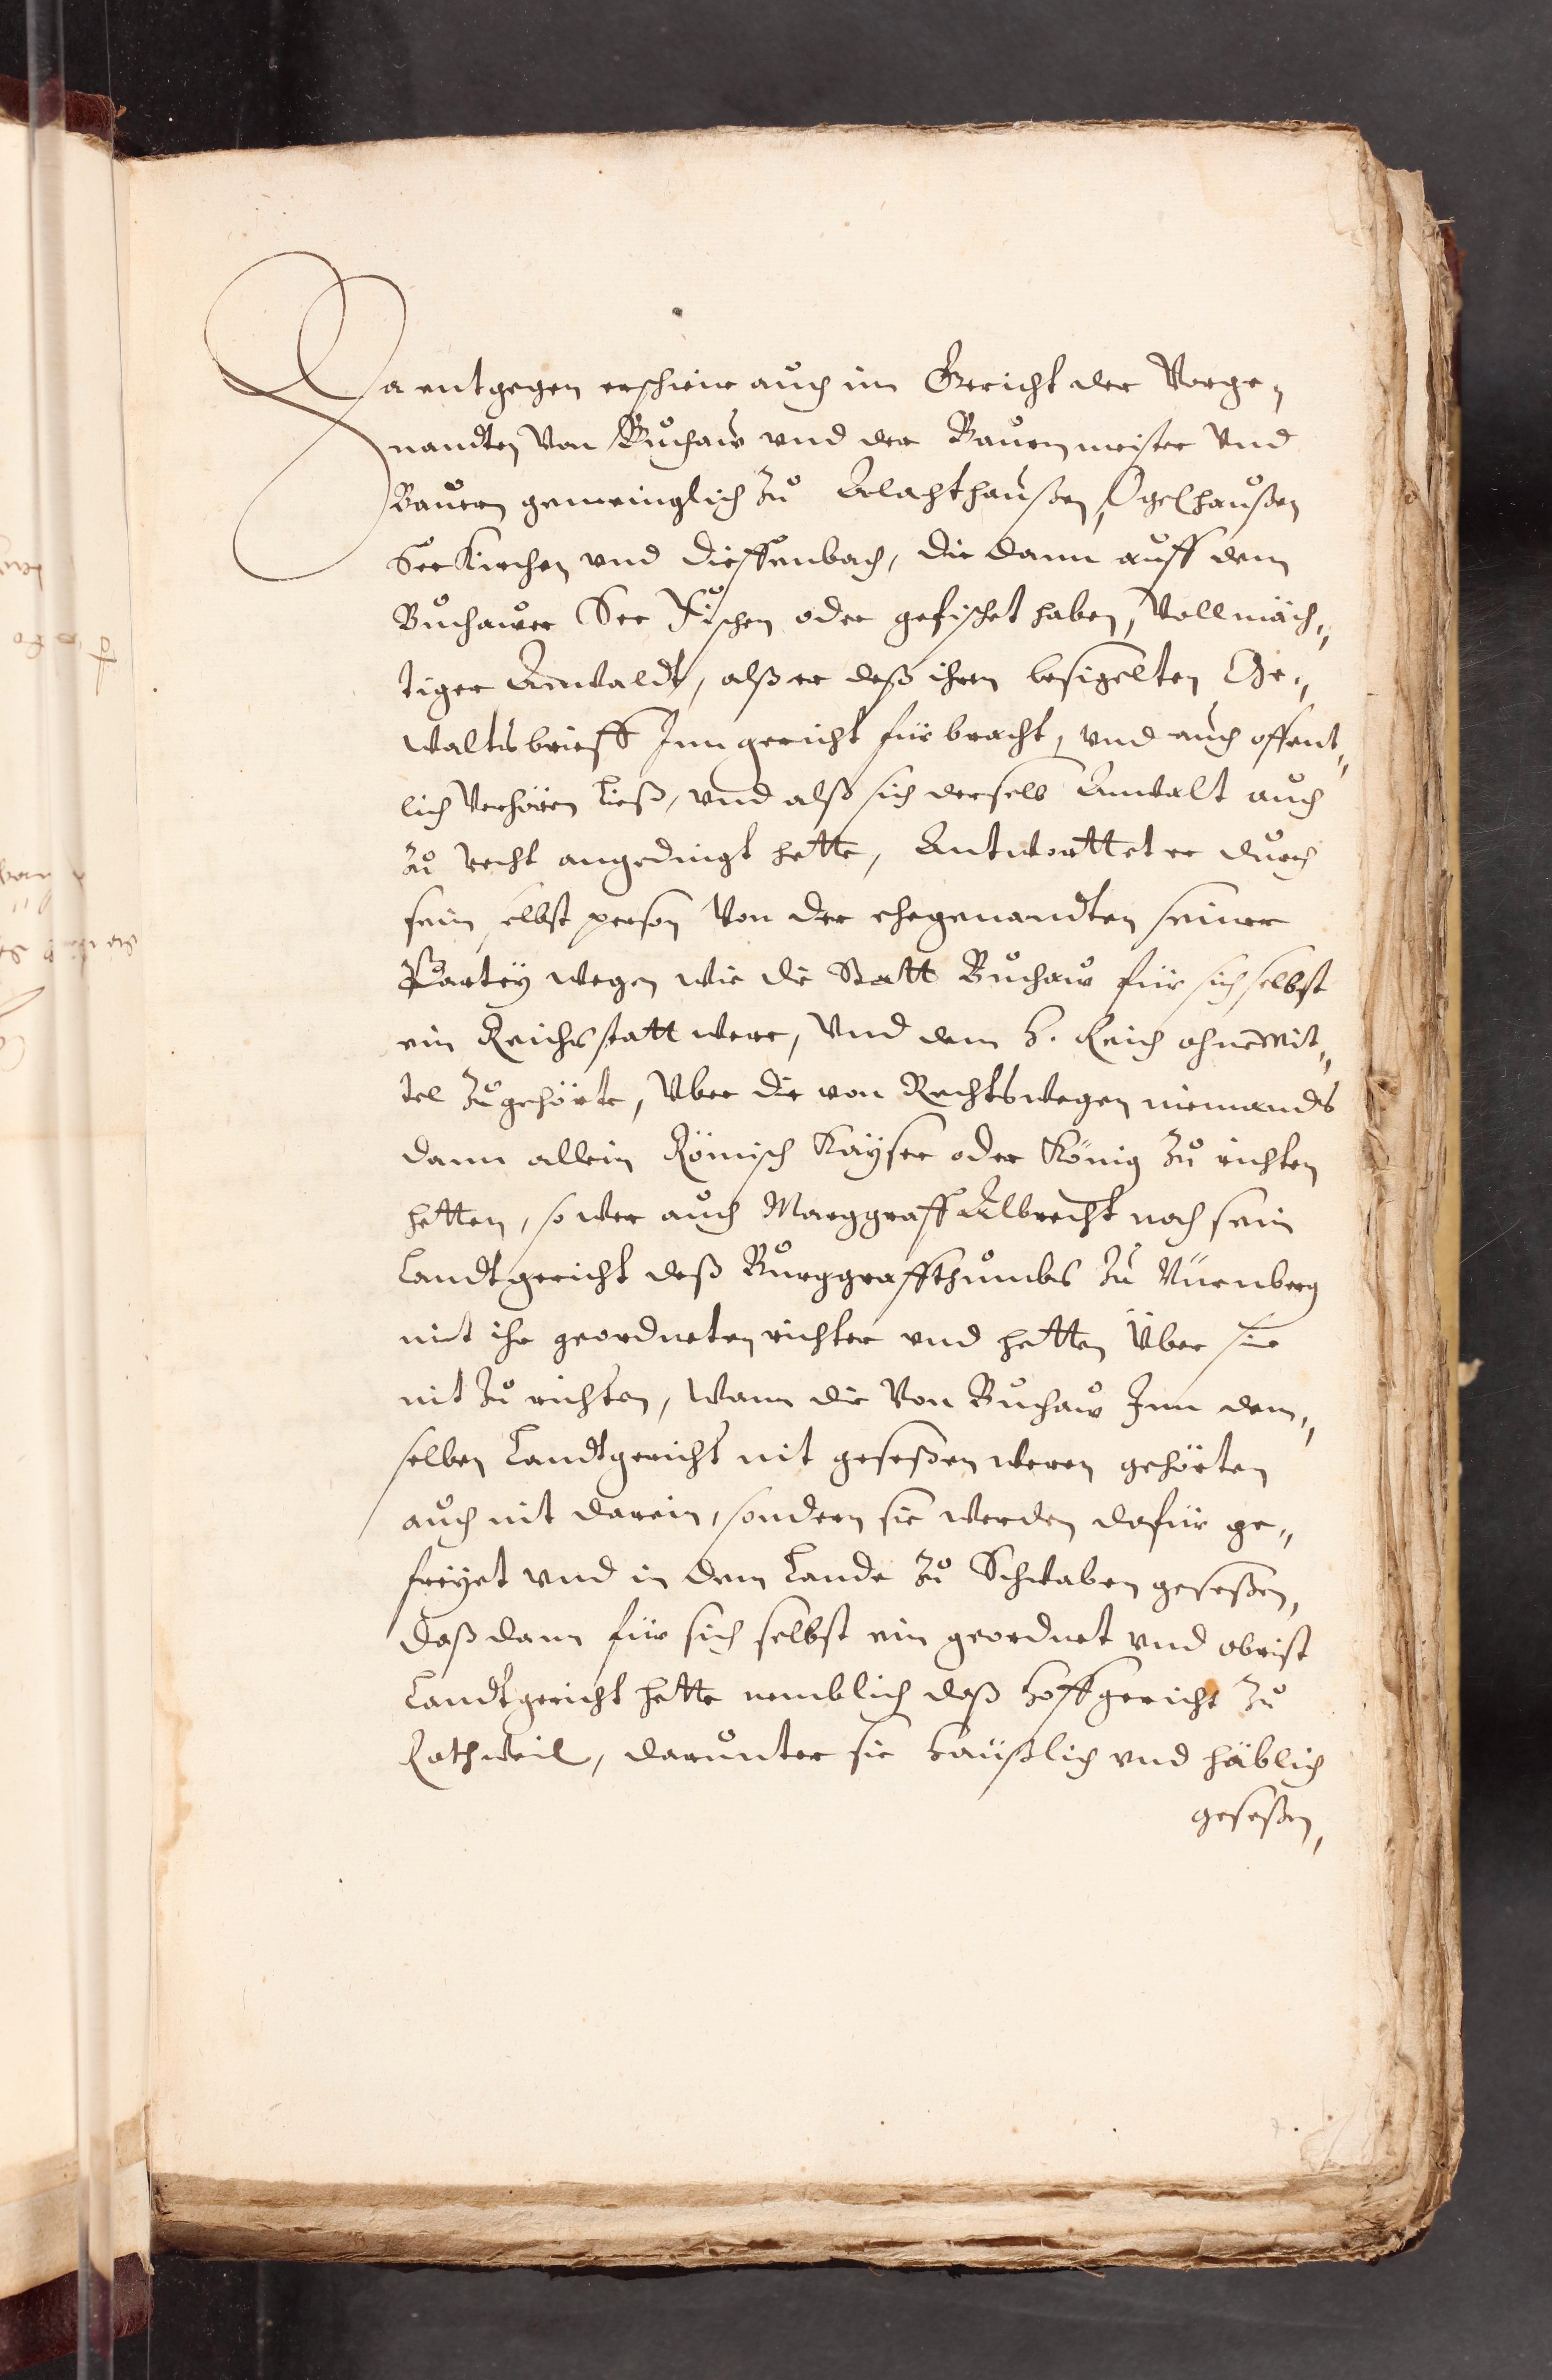 Da entgegen erschiene auch im Gericht der Vorge,
nandten Von Buchaw vnd der Bauren meister Vnd
Bauern gemeinglich zu Alachthaußen, Ogelhaußen
Seekirchen vnd Dieffenbach, die dann auff dem
Buchawer See Fischen oder gefischet haben, Vollmäch„
tiger Anwaldt, alß er deß ihren besigelten Ge„
waltsbrieff Inn gericht fürbracht, vnd auch offent„
lich Verhören ließ, vnd alß sich derselb Anwalt auch
zu recht angedingt hette, Antworttet er durch
sein selbst person Von der ehegenandten seiner
Partey wegen wie die Statt Buchaw für sich selbst
ein Reichsstatt were, Vnd dem H. Reich ohnemit„
tel zugehörte, Vber die von Rechtswegen niemands
dann allein Römisch Kayser oder König zu richten
hetten, so wer auch Marggraff Albrecht noch sein
Landtgericht deß Burggraffthumbs zu Nürnberg
nit ihr geordneten richter vnd hetten Über sie
nit zu richten, Wann die Von Buchaw Inn dem„
selben Landtgericht nit geseßen weren gehörten
auch nit darein, sondern sie werden dafür ge„
freyet vnd in dem Lande zu Schwaben geseßen,
daß dann für sich selbst ein geordnet vnd obrist
Landtgericht hette nemblich daß Hoffgericht zu
Rothweil, darunter sie häußlich vnd häblich
geseßen,